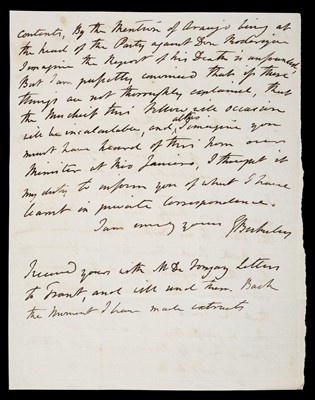 contents, By the Mention of Araujo being at
the head of the Party against Don Roderigo
I imagine the Report of his Death is unfounded,
But I am perfectly convinced that if these
things are not thoroughly explained, that
the Mischief this Fellow will occasion
will be incalculable, and, altho I imagine you
must have heard of this from our
Minister at Rio Janeiro, I thought it
my duty to inform you of what I have
learnt in private correspondence.
I am ever yours GBerkeley
I received yours with M De Forjaz letters
to Trant, and will send them Back
the Moment I have made extracts